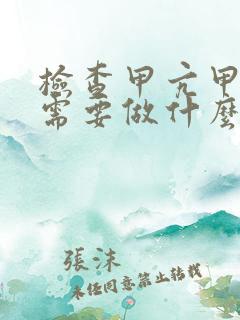 檢查甲亢甲
需要做什麼
張沫
未經同意禁止轉載